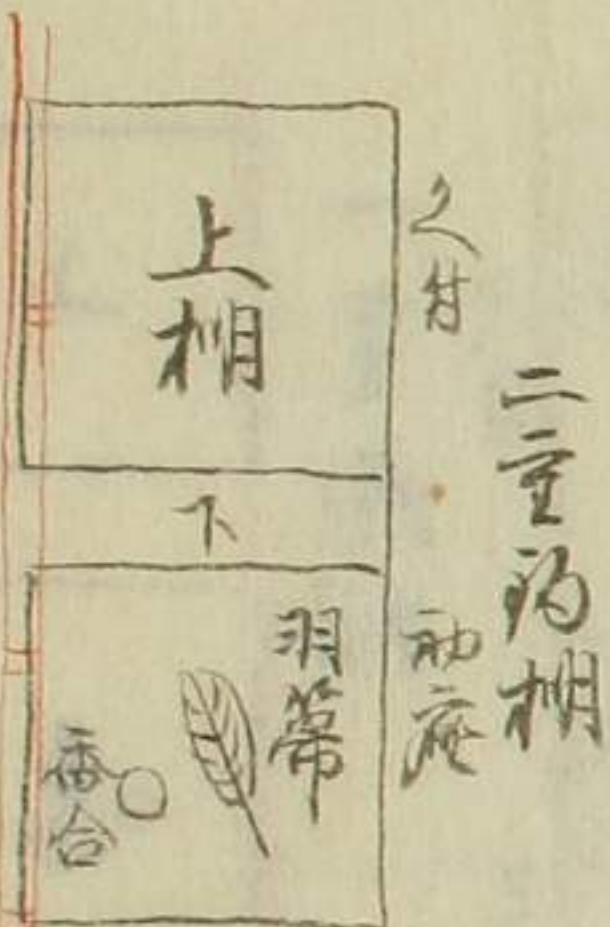 二重釣棚
初座
上棚
下
羽箒
香合